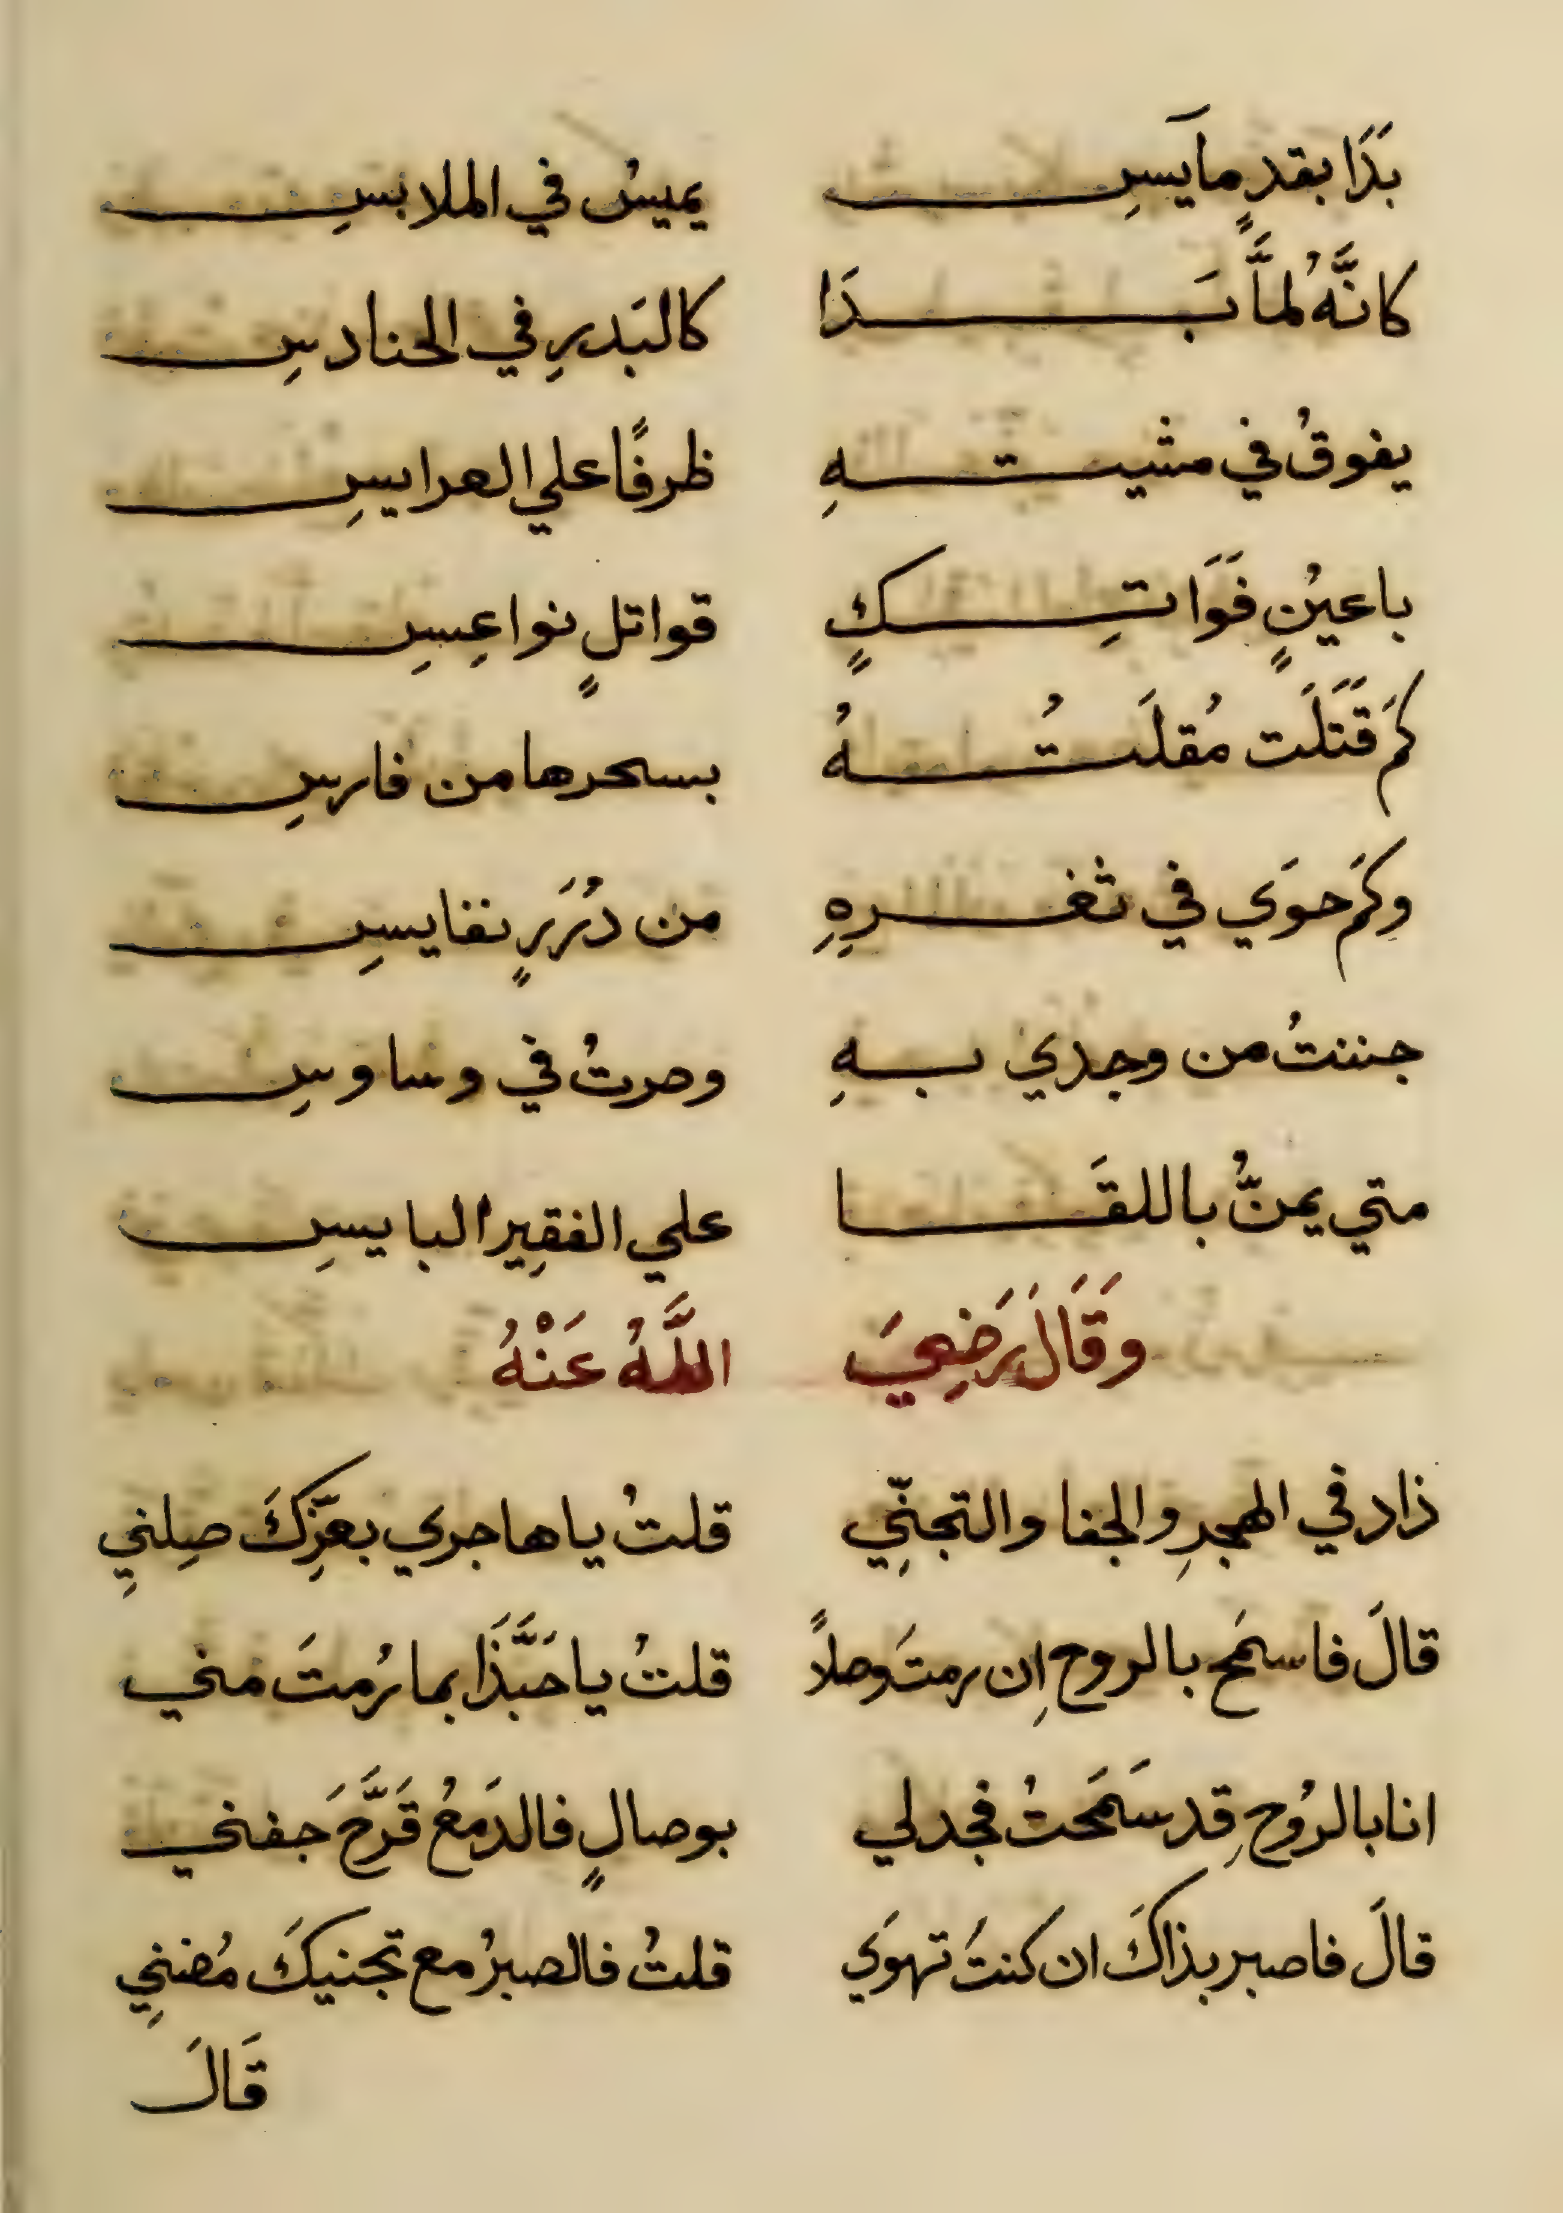 بَدَا بقدٍ مَايسِ يميسُ في الملابسِ
كانَّهُ لمَّا بَدَا كالبَدرِ في الحنادسِ
يفوقُ في مشيتهِ ظرفًا علي العرايسِ
باعيُنٍ فَوَاتِكٍ قواتلٍ نواعِسِ
كَم قَتَلَت مُقلَتُهُ بسحرها من فارسِ
وكَم حوَي في ثغرِهِ من دُرَرٍ نفايسِ
جننتُ من وجدي بهِ وصرتُ في وساوسِ
متي يمنُّ باللقَا علي الفقِير البايسِ
وَقَالَ رَضِيَ اللَّهُ عَنْهُ
ذاد في الهجرِ والجفا والتجنِّي قلتُ يا هاجري بعزِّكَ صِلنِي
قالَ فاسمَح بالروح اِن رمتَ وصلاً قلتُ يا حَبَّذَا بما رُمتَ مني
انا بالرُوحِ قد سَمَحتُ فجد لي بوصالٍ فالدَمعُ قَرَّحَ جفني
قالَ فاصبر بذاكَ ان كنتَ تهوَي قلتُ فالصبرُ مع تجنيكَ مُضنِي
قَالَ